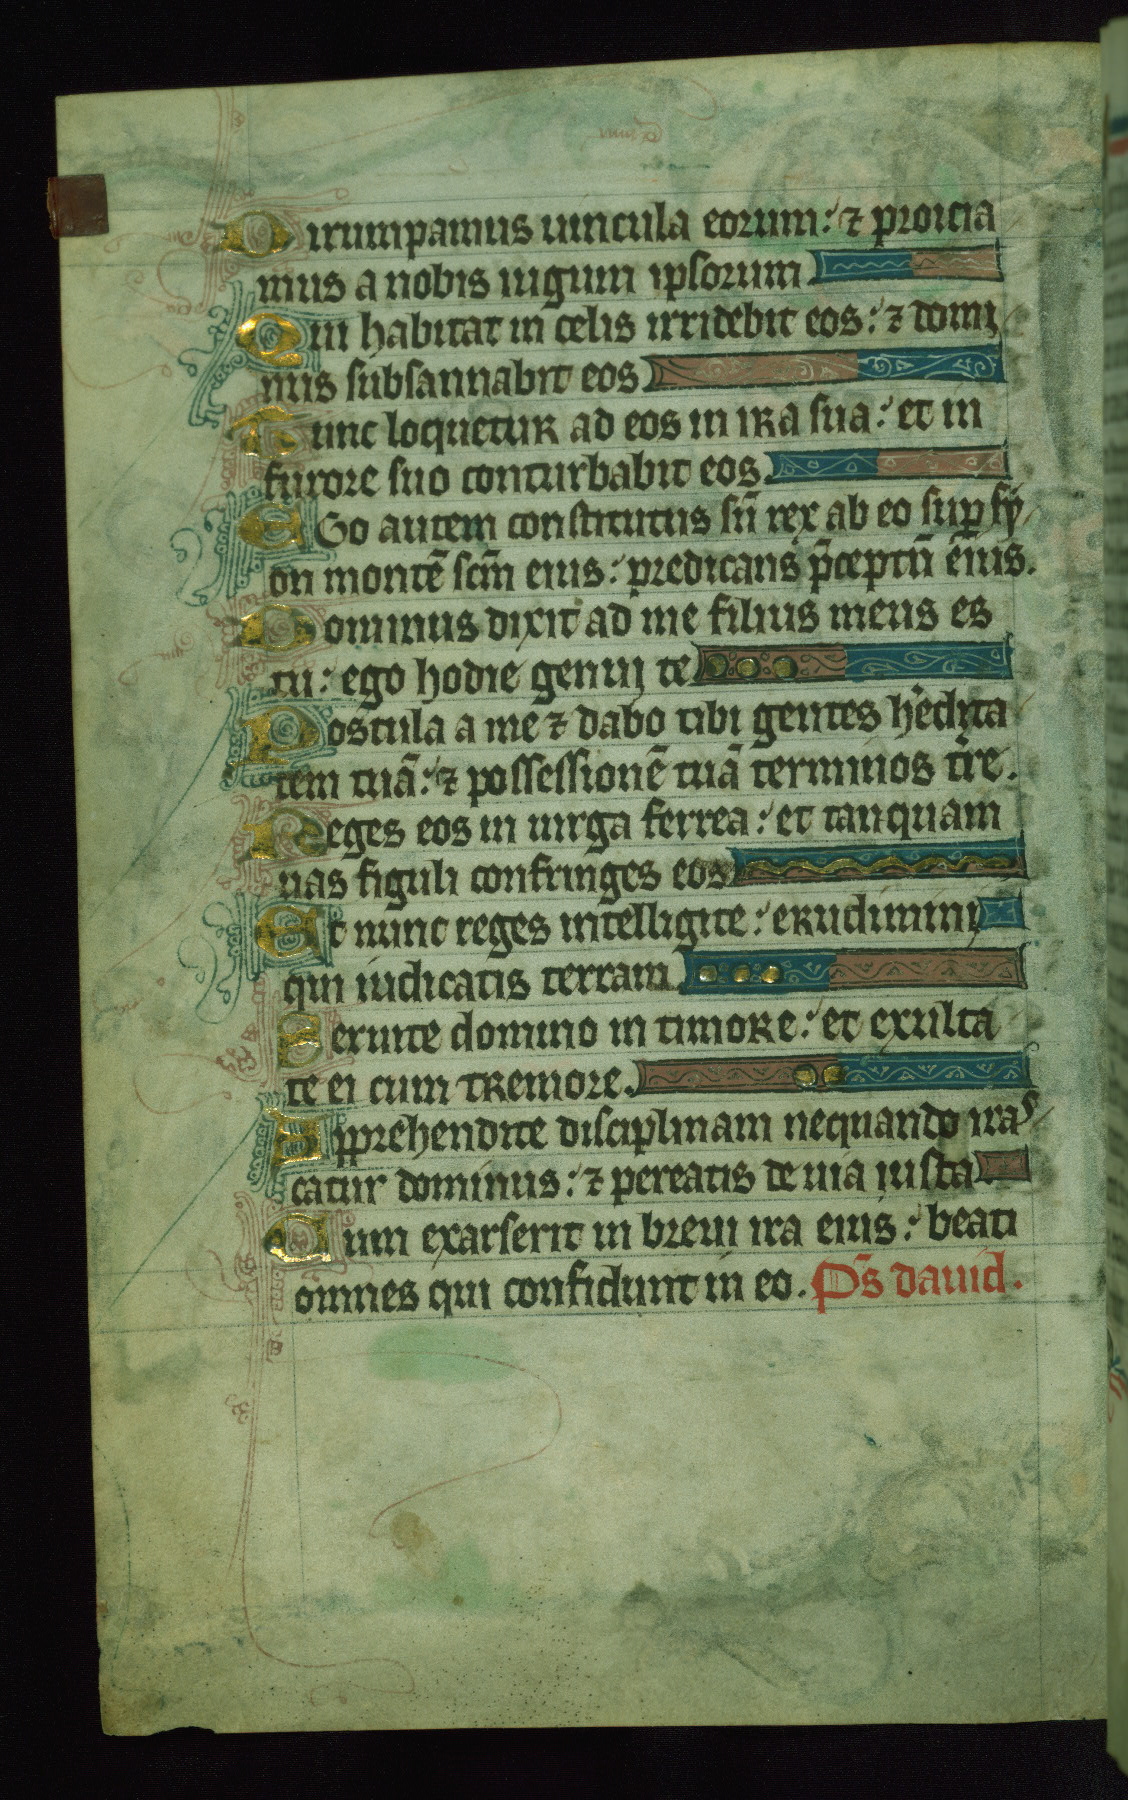 Dirumpamus uincula eorum: ⁊ proicia
mus a nobis iugum ipsorum
Qui habitat in celis irridebit eos: ⁊ domi
nus subsannabit eos
Tunc loquetur ad eos in ira sua: et in
furore suo conturbabit eos.
Ego autem constitutus sū rex ab eo sup sy
on montē scm̄ eius: predicans p̄ceptū eius.
Dominus dixit ad me filius meus es
tu: ego hodie genui te
Postula a me ⁊ dabo tibi gentes h̓edita
tem tuā: ⁊ possessionē tuā terminos t̓re.
Reges eos in uirga ferrea: et tanquam
uas figuli confringes eos
Et nunc reges intelligite: erudimini
qui iudicatis terram
Seruite domino in timore: et exulta
te ei cum tremore.
Apprehendite disciplinam nequando iras
catur dominus: ⁊ pereatis de uia iusta
Cum exarserit in breui ira eius: beati
omnes qui confidunt in eo. Ps̄ dauid.